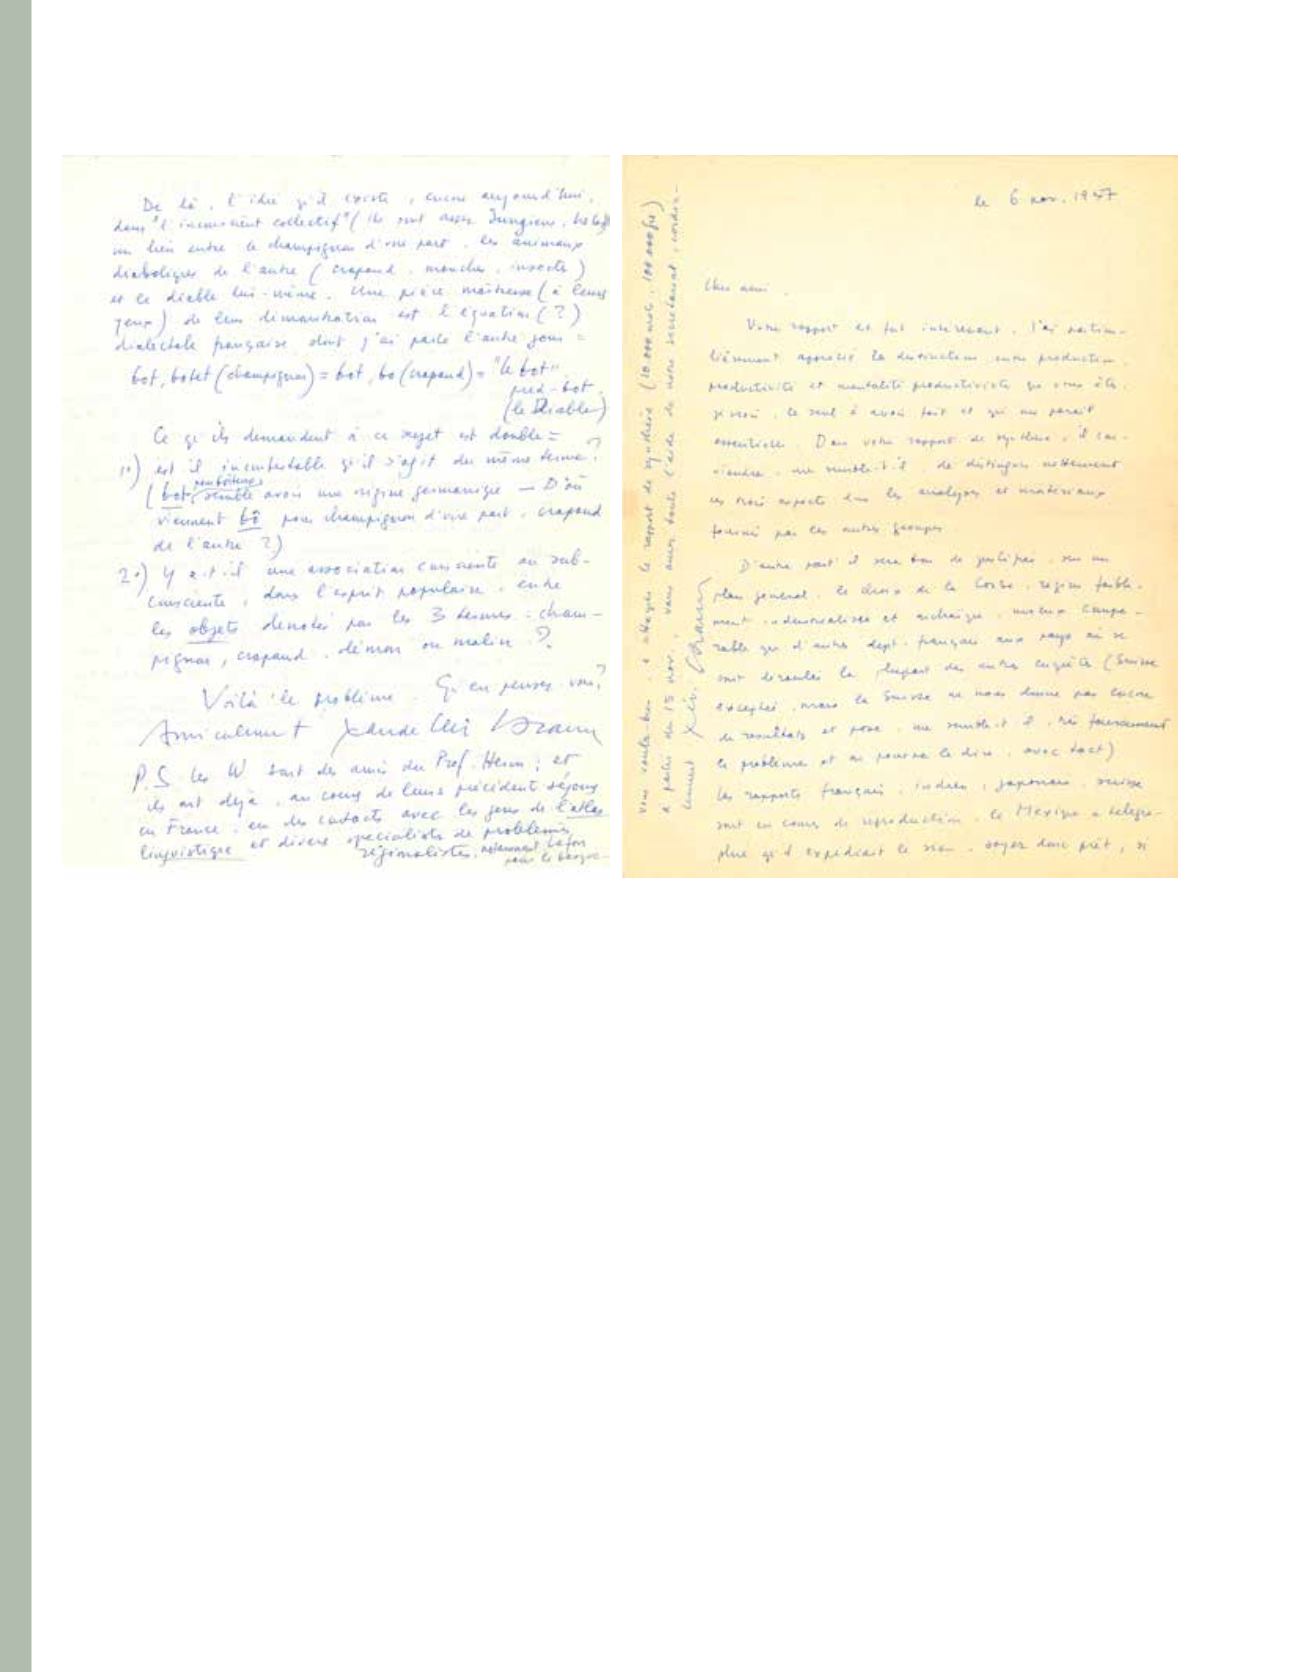 De là, l'idée qu'il existe, encore aujourd'hui,
dans "l'inconscient collectif" (ils sont assez Jungiens, hélas)
un lien entre le champignon d'une part, les animaux
diaboliques de l'autre (crapaud, mouches, insectes)
et le diable lui-même. Une pièce maîtresse (à leurs
yeux) de leur démonstration est l'équation (?)
dialectale française dont j'ai parlé l'autre jour =
bot, botet (champignon) = bot, bo (crapaud) = "le bot",
pied-bot
(le Diable)
Ce qu'ils demandent à ce sujet est double =
1°) est-il incontestable qu'il s'agit du même terme ?
(bot, semble avoir une origine germanique — D'où
viennent bô pour champignon d'une part, crapaud
de l'autre ?)
2°) Y a-t-il une association consciente ou sub-
consciente, dans l'esprit populaire, entre
les objets dénotés par les 3 termes : cham-
pignon, crapaud, démon ou malin ?
Voilà le problème. Qu'en pensez-vous ?
Amicalement Claude Lévi Strauss
P.S. Les W sont des amis du Prof. Heim ; et
ils ont déjà, au cours de leurs précédent séjours
en France, eu des contacts avec les gens de l'atlas
linguistique et divers spécialistes de problèmes
régionalistes, notamment Lafon
pour le basque.
le 6 nov. 1957
Cher ami,
Votre rapport est fort intéressant. J'ai particu-
lièrement apprécié la distinction entre production,
productivité et mentalité productiviste que vous êtes,
je crois, le seul à avoir fait et qui me paraît
essentielle. Dans votre rapport de synthèse, il con-
viendra, me semble-t-il, de distinguer nettement
ces trois aspects dans les analyses et matériaux
fournis par les autres groupes.
D'autre part il sera bon de justifier, sur un
plan général, le choix de la Corse, région faible-
ment industrialisée et archaïque, mieux compa-
rable que d'autres dépt. français aux pays où se
sont déroulées la plupart des autres enquêtes (Suisse
exceptée, mais la Suisse ne nous donne pas encore
de résultats et pose, me semble-t-il,
le problème et on pourra le dire, avec tact)
Les rapports français, indien, japonais, suisse
sont en cours de reproduction. Le Mexique a télégra-
phié qu'il expédiait le sien. Soyez donc prêt, si
vous voulez bien, à attaquer le rapport de synthèse (10.000 mots, 100.000 frs)
à partir du 15 nov., vous aurez toute l'aide de notre secrétariat, cordia-
lement Lévi Strauss